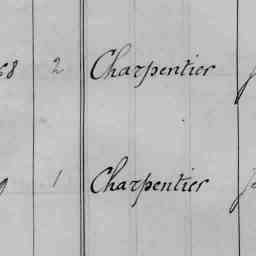 68 2 Charpentier
1 Charpentier